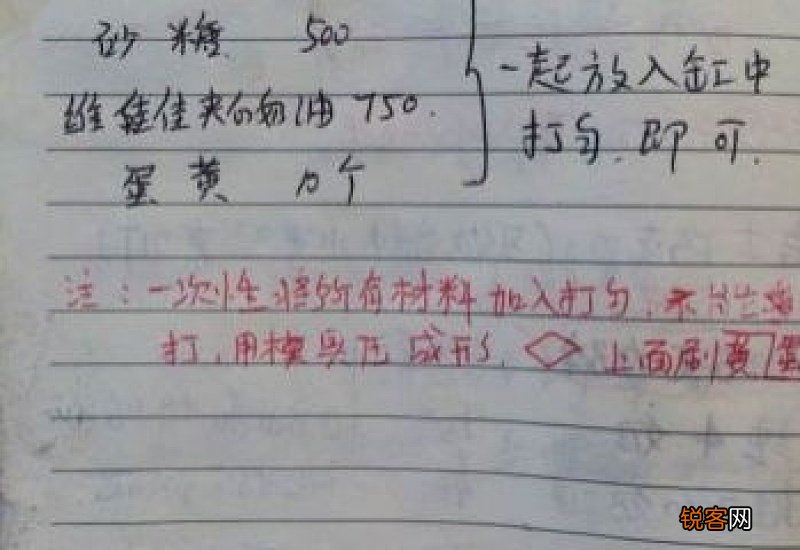 砂糖 500
维维佳夹心奶油 750.
蛋黄 10个
一起放入缸中
打匀.即可.
注:一次性将所有材料加入打匀,不
打,用模具压成形,◇上面刷黄
锐客网